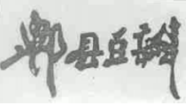 郫县豆瓣